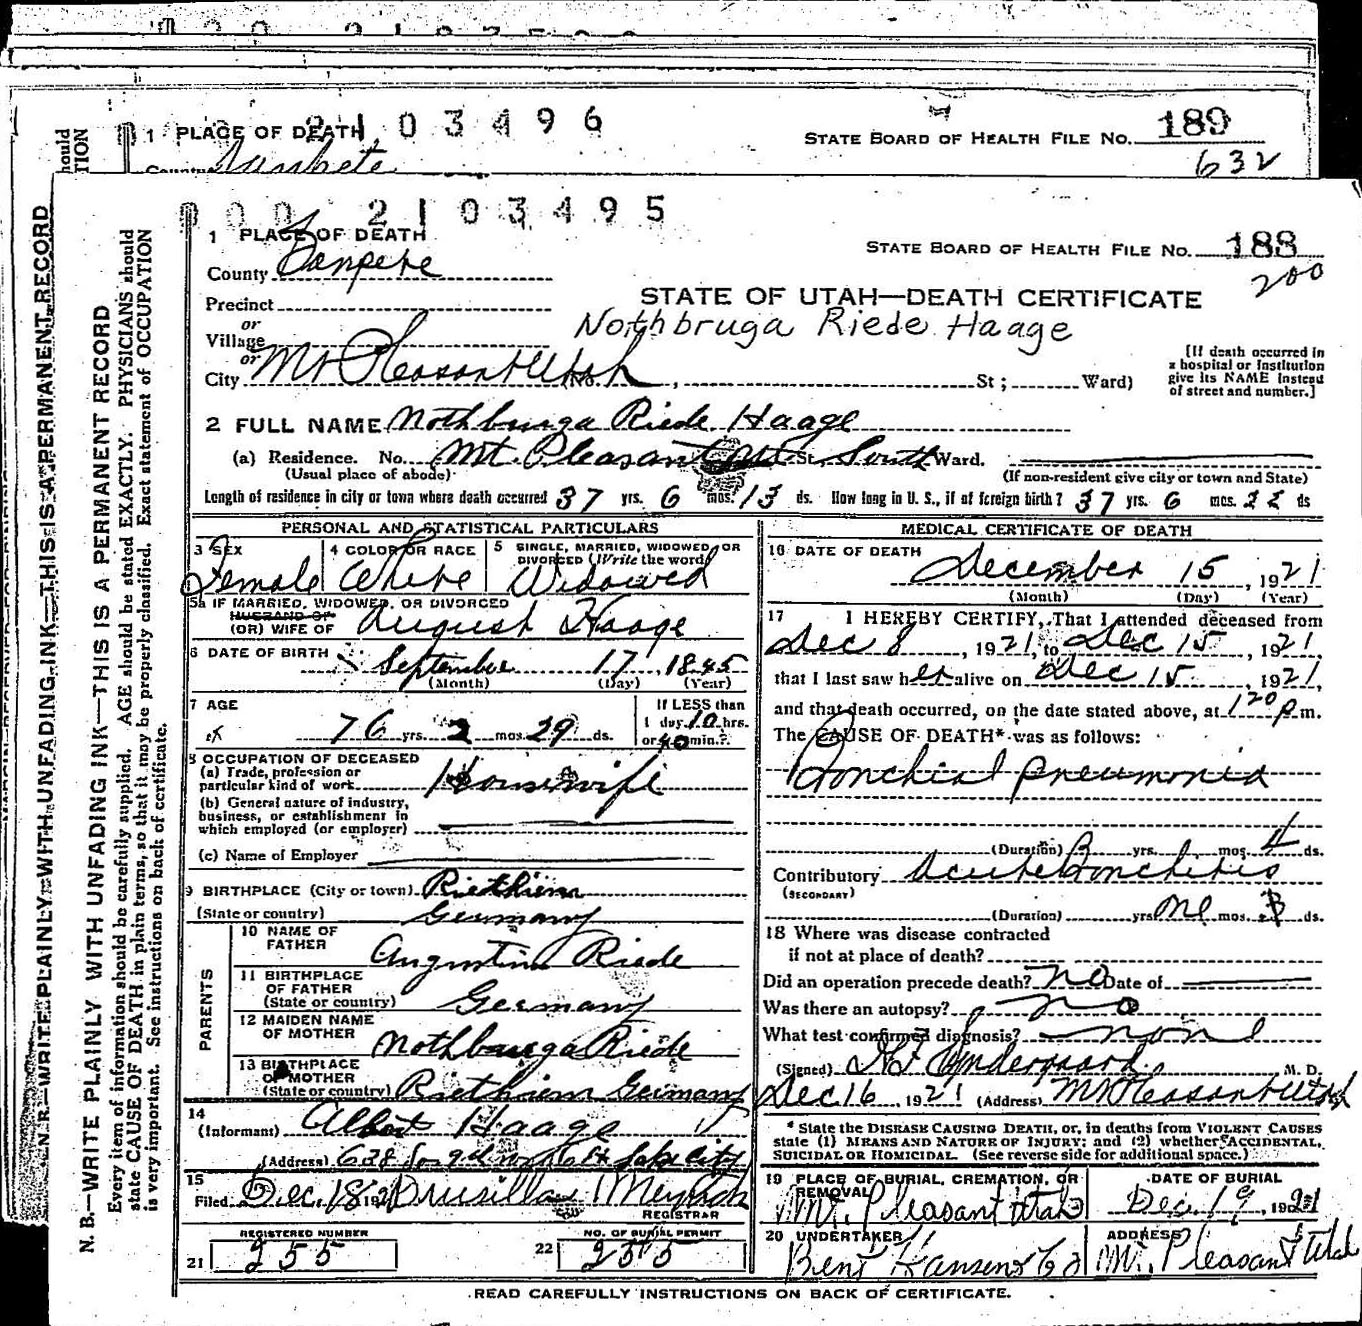 2103496
1 PLACE OF DEATH
STATE BOARD OF HEALTH FILE NO. 189
County Sanpete
632
000 2103495
1 PLACE OF DEATH
STATE BOARD OF HEALTH FILE NO. 188
200
County Sanpete
STATE OF UTAH—DEATH CERTIFICATE
Precinct
Nothbruga Riede Haage
or
Village
or
City Mt Pleasant Utah No. , St ; Ward)
[If death occurred in a hospital or institution give its NAME instead of street and number.]
2 FULL NAME Nothburga Riede Haage
(a) Residence. No. Mt. Pleasant St. South Ward.
(Usual place of abode) (If non-resident give city or town and State)
Length of residence in city or town where death occurred 37 yrs. 6 mos. 13 ds. How long in U. S., if of foreign birth? 37 yrs. 6 mos. 22 ds
PERSONAL AND STATISTICAL PARTICULARS
3 SEX
Female
4 COLOR OR RACE
White
5 SINGLE, MARRIED, WIDOWED, OR DIVORCED (Write the word)
Widowed
5a IF MARRIED, WIDOWED, OR DIVORCED
HUSBAND OF
(OR) WIFE OF August Haage
6 DATE OF BIRTH September 17, 1845
(Month) (Day) (Year)
7 AGE
76 yrs. 2 mos. 29 ds.
If LESS than
1 day 10 hrs.
or 40 min.?
8 OCCUPATION OF DECEASED
(a) Trade, profession or
particular kind of work Housewife
(b) General nature of industry,
business, or establishment in
which employed (or employer)
(c) Name of Employer
9 BIRTHPLACE (City or town) Riethiem
(State or country) Germany
PARENTS
10 NAME OF FATHER
Augustin Riede
11 BIRTHPLACE OF FATHER
(State or country) Germany
12 MAIDEN NAME OF MOTHER
Nothburga Riede
13 BIRTHPLACE OF MOTHER
(State or country) Riethiem Germany
14
(Informant) Albert Haage
(Address) 628 So 9th Salt Lake City
15
Filed Dec. 18, 1921 Drusilla
REGISTRAR
REGISTERED NUMBER
21 255
NO. OF BURIAL PERMIT
22 255
MEDICAL CERTIFICATE OF DEATH
16 DATE OF DEATH
December 15, 1921
(Month) (Day) (Year)
17 I HEREBY CERTIFY, That I attended deceased from
Dec 8, 1921, to Dec 15, 1921,
that I last saw her alive on Dec 15, 1921,
and that death occurred, on the date stated above, at 120 p.m.
The CAUSE OF DEATH* was as follows:
Bronchial pneumonia
(Duration) yrs. mos. 4 ds.
Contributory Acute Bronchitis
(SECONDARY)
(Duration) yrs. mos. ds.
18 Where was disease contracted
if not at place of death?
Did an operation precede death? no Date of
Was there an autopsy? no
What test confirmed diagnosis? none
(Signed) M. D.
Dec 16, 1921 (Address) Mt Pleasant Utah
* State the DISEASE CAUSING DEATH, or, in deaths from VIOLENT CAUSES
state (1) MEANS AND NATURE OF INJURY; and (2) whether ACCIDENTAL,
SUICIDAL OR HOMICIDAL. (See reverse side for additional space.)
19 PLACE OF BURIAL, CREMATION, OR REMOVAL
Mt. Pleasant Utah
DATE OF BURIAL
Dec. 19, 1921
20 UNDERTAKER
Bent Hansen Co
ADDRESS
Mt. Pleasant Utah
READ CAREFULLY INSTRUCTIONS ON BACK OF CERTIFICATE.
N. B.—WRITE PLAINLY WITH UNFADING INK—THIS IS A PERMANENT RECORD
Every item of information should be carefully supplied. AGE should be stated EXACTLY. PHYSICIANS should
state CAUSE OF DEATH in plain terms, so that it may be properly classified. Exact statement of OCCUPATION
is very important. See instructions on back of certificate.
N. B.—WRITE PLAINLY WITH UNFADING INK—THIS IS A PERMANENT RECORD